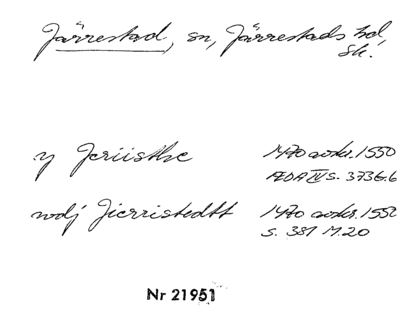 Järrestad, sn, Järrestads hd,
Sk.
y Jeriisthe 1470 avskr. 1550
ÆDA IV s. 373 G.6
wdj Jierristedtt 1470 avskr. 1550
s. 381 M.20
Nr 21951